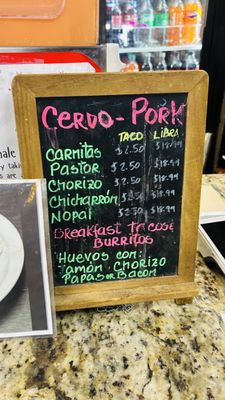 CERDO - PORK
TACO LIBRA
CARNITAS $2.50 $18.99
PASTOR $2.50 $18.99
CHORIZO $2.50 $18.99
CHICHARRÓN $2.50 $18.99
NOPAL $2.50 $18.99
BREAKFAST TACOS &
BURRITOS
HUEVOS CON:
JAMÓN CHORIZO
PAPAS OR BACON